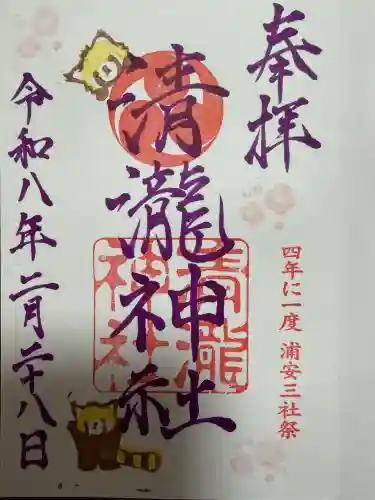 奉拝
四年に一度 浦安三社祭
清瀧神社
清瀧
神社
令和八年二月二十八日